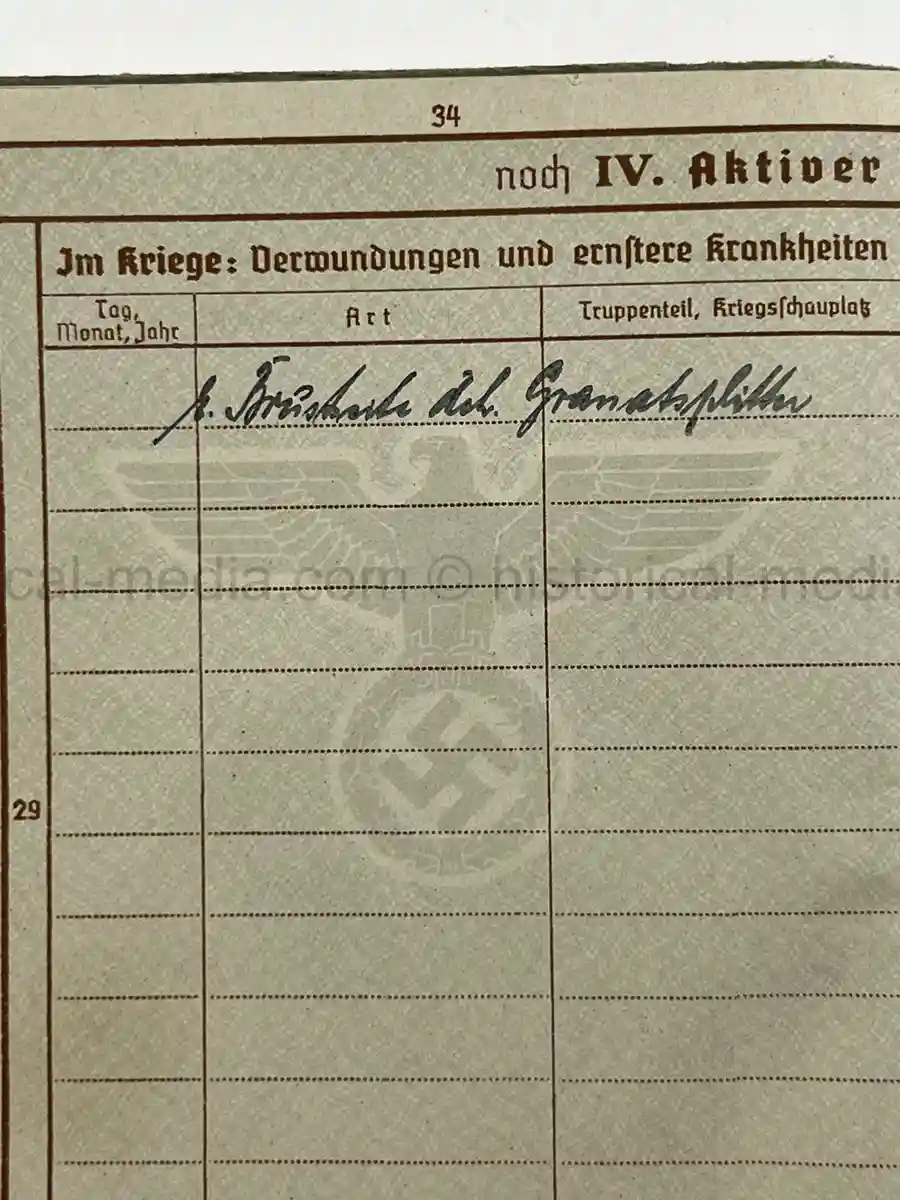 34
noch IV. Aktiver
Im Kriege: Verwundungen und ernstere Krankheiten
Tag, Monat, Jahr
Art
Truppenteil, Kriegsschauplatz
Brustseite dch. Granatsplitter
cal-media.com © historical-media
29